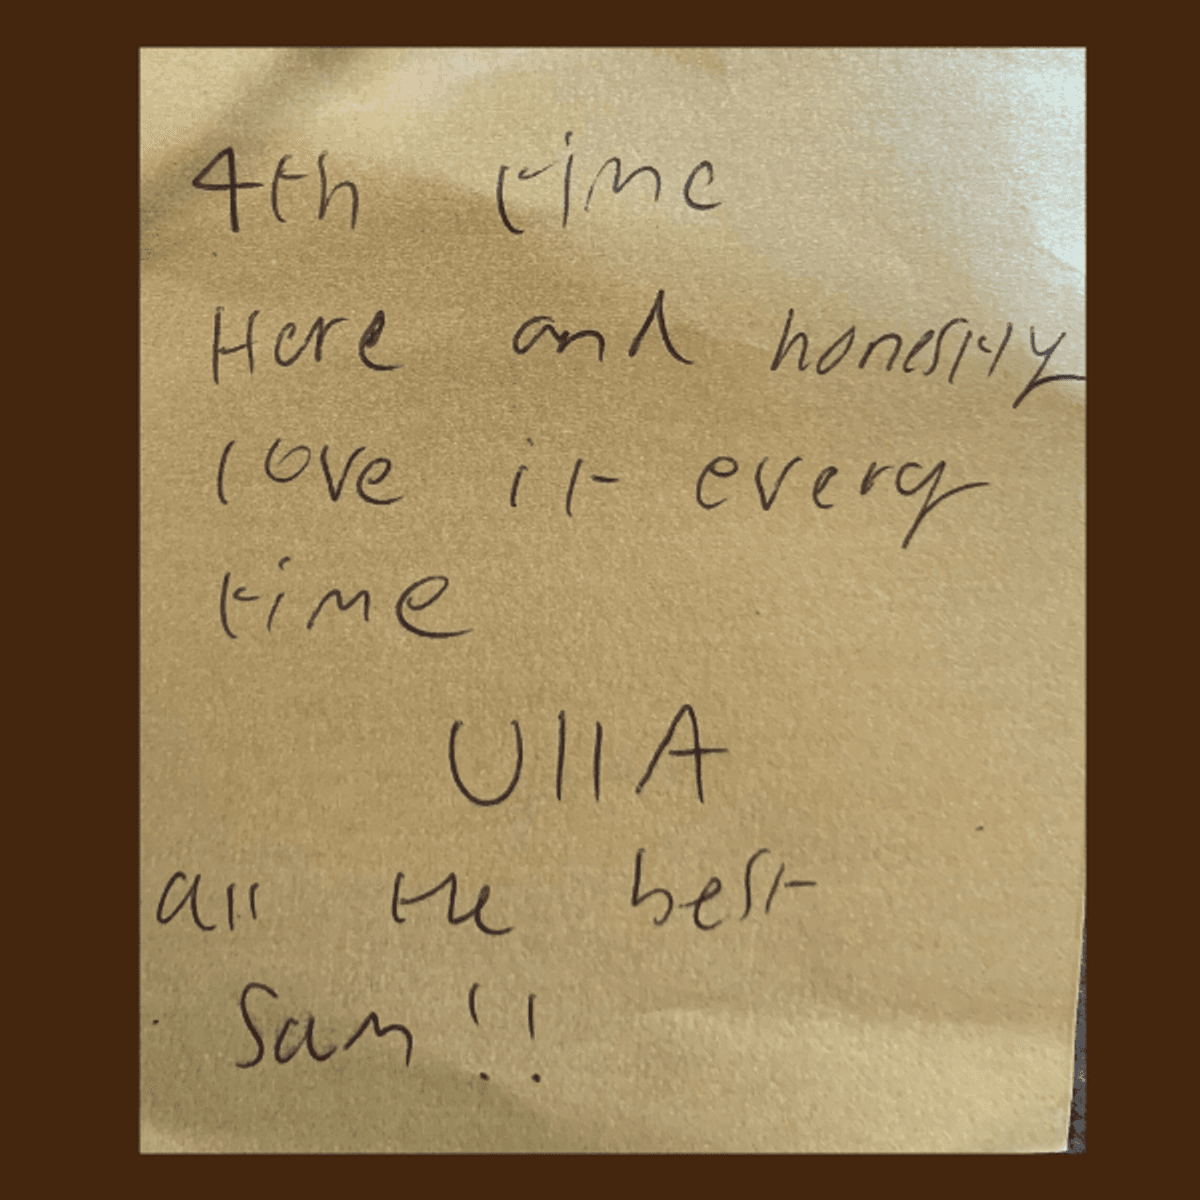 4th time
Here and honestly
love it every
time
UllA
all the best
Sam!!